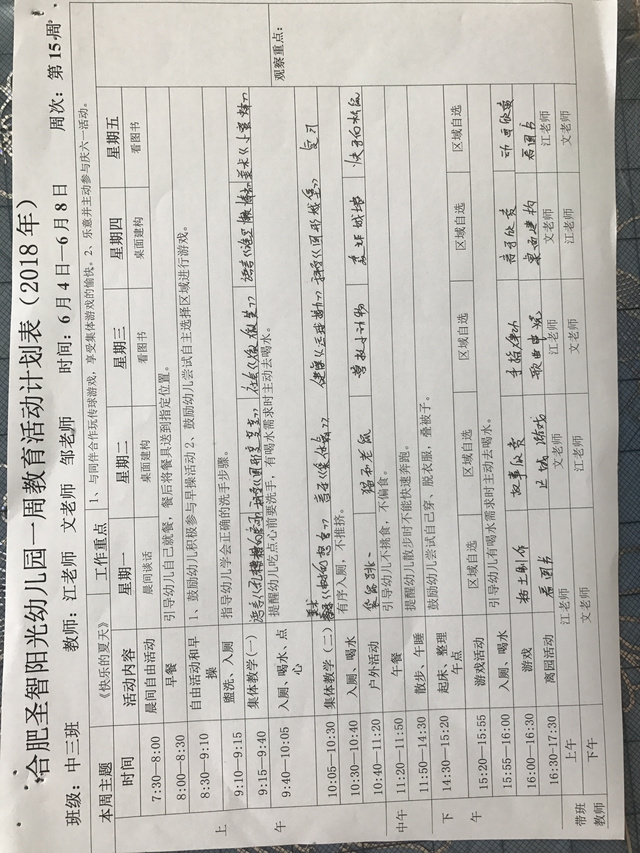 合肥圣智阳光幼儿园一周教育活动计划表（2018 年）
班级：中三班 教师：江老师 文老师 邹老师 时间：6 月 4 日—6 月 8 日 周次：第 15 周
本周主题 《快乐的夏天》 工作重点 1、与同伴合作玩传球游戏，享受集体游戏的愉快。2、乐意并主动参与庆六一活动。
时间 活动内容 星期一 星期二 星期三 星期四 星期五
观察重点：
上午
7:30—8:00 晨间自由活动 晨间谈话 桌面建构 看图书 桌面建构 看图书
8:00—8:30 早餐 引导幼儿自己就餐，餐后将餐具送到指定位置。
8:30—9:10 自由活动和早操 1、鼓励幼儿积极参与早操活动 2、鼓励幼儿尝试自主选择区域进行游戏。
9:10—9:15 盥洗、入厕 指导幼儿学会正确的洗手步骤。
9:15—9:40 集体教学(一)
9:40—10:05 入厕、喝水、点心 提醒幼儿吃点心前要洗手，有喝水需求时主动去喝水。
10:05—10:30 集体教学（二） 复习
10:30—10:40 入厕、喝水 有序入厕，不推挤。
10:40—11:20 户外活动 袋鼠跳 猫和老鼠 夺红小计划 快乐的
中午
11:20—11:50 午餐 引导幼儿不挑食，不偏食。
11:50—14:30 散步、午睡 提醒幼儿散步时不能快速奔跑。
下午
14:30—15:20 起床、整理 午点 鼓励幼儿尝试自己穿、脱衣服，叠被子。
15:20—15:55 游戏活动 区域自选 区域自选 区域自选 区域自选 区域自选
15:55—16:00 入厕、喝水 引导幼儿有喝水需求时主动去喝水。
16:00—16:30 游戏 粘土制作 故事欣赏 手指律动 亲子欣赏 动画欣赏
16:30-17:30 离园活动 看图书 区域游戏 歌曲串烧 桌面建构 看图书
带班教师 上午 江老师 文老师 江老师 文老师 江老师
下午 文老师 江老师 文老师 江老师 文老师